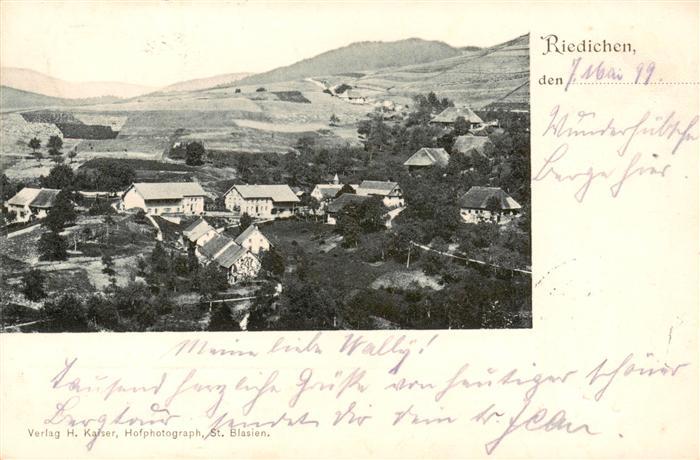 Riedichen,
den 7. Mai 99.
Wunderhübsche
Berge hier
Meine liebe Wally!
Tausend herzliche Grüße von heutiger schöner
Bergtour sendet dir dein tr. Jean.
Verlag H. Kaiser, Hofphotograph, St. Blasien.